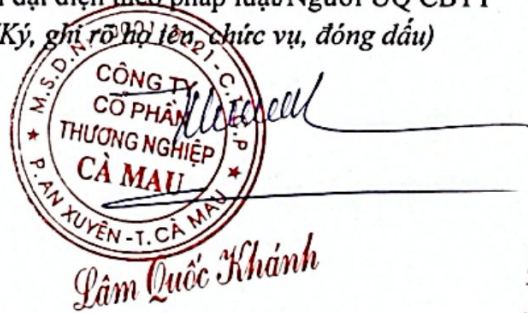 đại diện theo pháp luật/Người UQ CBTT
(Ký, ghi rõ họ tên, chức vụ, đóng dấu)
CÔNG TY
CỔ PHẦN
THƯƠNG NGHIỆP
CÀ MAU
P. AN XUYÊN - T. CÀ MAU
Lâm Quốc Khánh